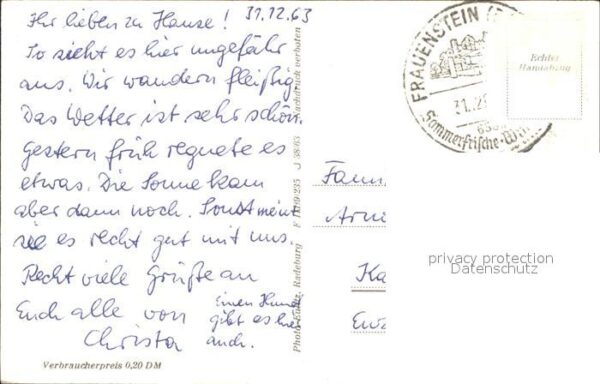 Ihr lieben zu Hause! 31.12.63
So sieht es hier ungefähr
aus. Wir wandern fleißig.
Das Wetter ist sehr schön.
Gestern früh regnete es
etwas. Die Sonne kam
aber dann noch. Sonst meint
sie es recht gut mit uns.
Recht viele Grüße an
Euch alle von
Christa
Einen Hund
gibt es hier
auch.
Verbraucherpreis 0,20 DM
Radeburg J 38/63 Nachdruck verboten
FRAUENSTEIN
31.
Sommerfrische
Echter
Handabzug
Fam
Ka
privacy protection
Datenschutz